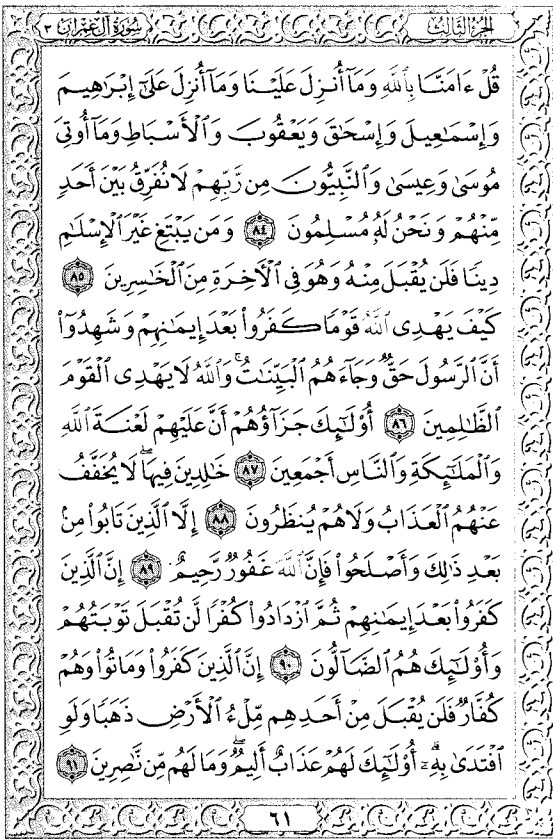 الجزء الثالث
سورة آل عمران ٣
قُلْ ءَامَنَّا بِٱللَّهِ وَمَآ أُنزِلَ عَلَيْنَا وَمَآ أُنزِلَ عَلَىٰٓ إِبْرَٰهِيمَ
وَإِسْمَٰعِيلَ وَإِسْحَٰقَ وَيَعْقُوبَ وَٱلْأَسْبَاطِ وَمَآ أُوتِىَ
مُوسَىٰ وَعِيسَىٰ وَٱلنَّبِيُّونَ مِن رَّبِّهِمْ لَا نُفَرِّقُ بَيْنَ أَحَدٍ
مِّنْهُمْ وَنَحْنُ لَهُۥ مُسْلِمُونَ ٨٤ وَمَن يَبْتَغِ غَيْرَ ٱلْإِسْلَٰمِ
دِينًا فَلَن يُقْبَلَ مِنْهُ وَهُوَ فِى ٱلْءَاخِرَةِ مِنَ ٱلْخَٰسِرِينَ ٨٥
كَيْفَ يَهْدِى ٱللَّهُ قَوْمًا كَفَرُوا۟ بَعْدَ إِيمَٰنِهِمْ وَشَهِدُوٓا۟
أَنَّ ٱلرَّسُولَ حَقٌّ وَجَآءَهُمُ ٱلْبَيِّنَٰتُ ۚ وَٱللَّهُ لَا يَهْدِى ٱلْقَوْمَ
ٱلظَّٰلِمِينَ ٨٦ أُو۟لَٰٓئِكَ جَزَآؤُهُمْ أَنَّ عَلَيْهِمْ لَعْنَةَ ٱللَّهِ
وَٱلْمَلَٰٓئِكَةِ وَٱلنَّاسِ أَجْمَعِينَ ٨٧ خَٰلِدِينَ فِيهَا ۖ لَا يُخَفَّفُ
عَنْهُمُ ٱلْعَذَابُ وَلَا هُمْ يُنظَرُونَ ٨٨ إِلَّا ٱلَّذِينَ تَابُوا۟ مِنۢ
بَعْدِ ذَٰلِكَ وَأَصْلَحُوا۟ فَإِنَّ ٱللَّهَ غَفُورٌ رَّحِيمٌ ٨٩ إِنَّ ٱلَّذِينَ
كَفَرُوا۟ بَعْدَ إِيمَٰنِهِمْ ثُمَّ ٱزْدَادُوا۟ كُفْرًا لَّن تُقْبَلَ تَوْبَتُهُمْ
وَأُو۟لَٰٓئِكَ هُمُ ٱلضَّآلُّونَ ٩٠ إِنَّ ٱلَّذِينَ كَفَرُوا۟ وَمَاتُوا۟ وَهُمْ
كُفَّارٌ فَلَن يُقْبَلَ مِنْ أَحَدِهِم مِّلْءُ ٱلْأَرْضِ ذَهَبًا وَلَوِ
ٱفْتَدَىٰ بِهِۦٓ ۗ أُو۟لَٰٓئِكَ لَهُمْ عَذَابٌ أَلِيمٌ ۖ وَمَا لَهُم مِّن نَّٰصِرِينَ ٩١
٦١